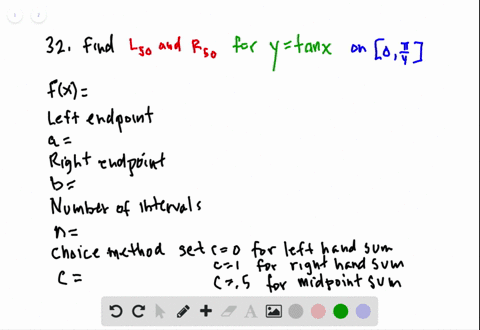 32. find L50 and R50 for y=tanx on [0, π/4]
f(x)=
Left endpoint
a=
Right endpoint
b=
Number of intervals
n=
Choice method set c=0 for left hand sum
c=1 for right hand sum
c=.5 for midpoint sum
c=